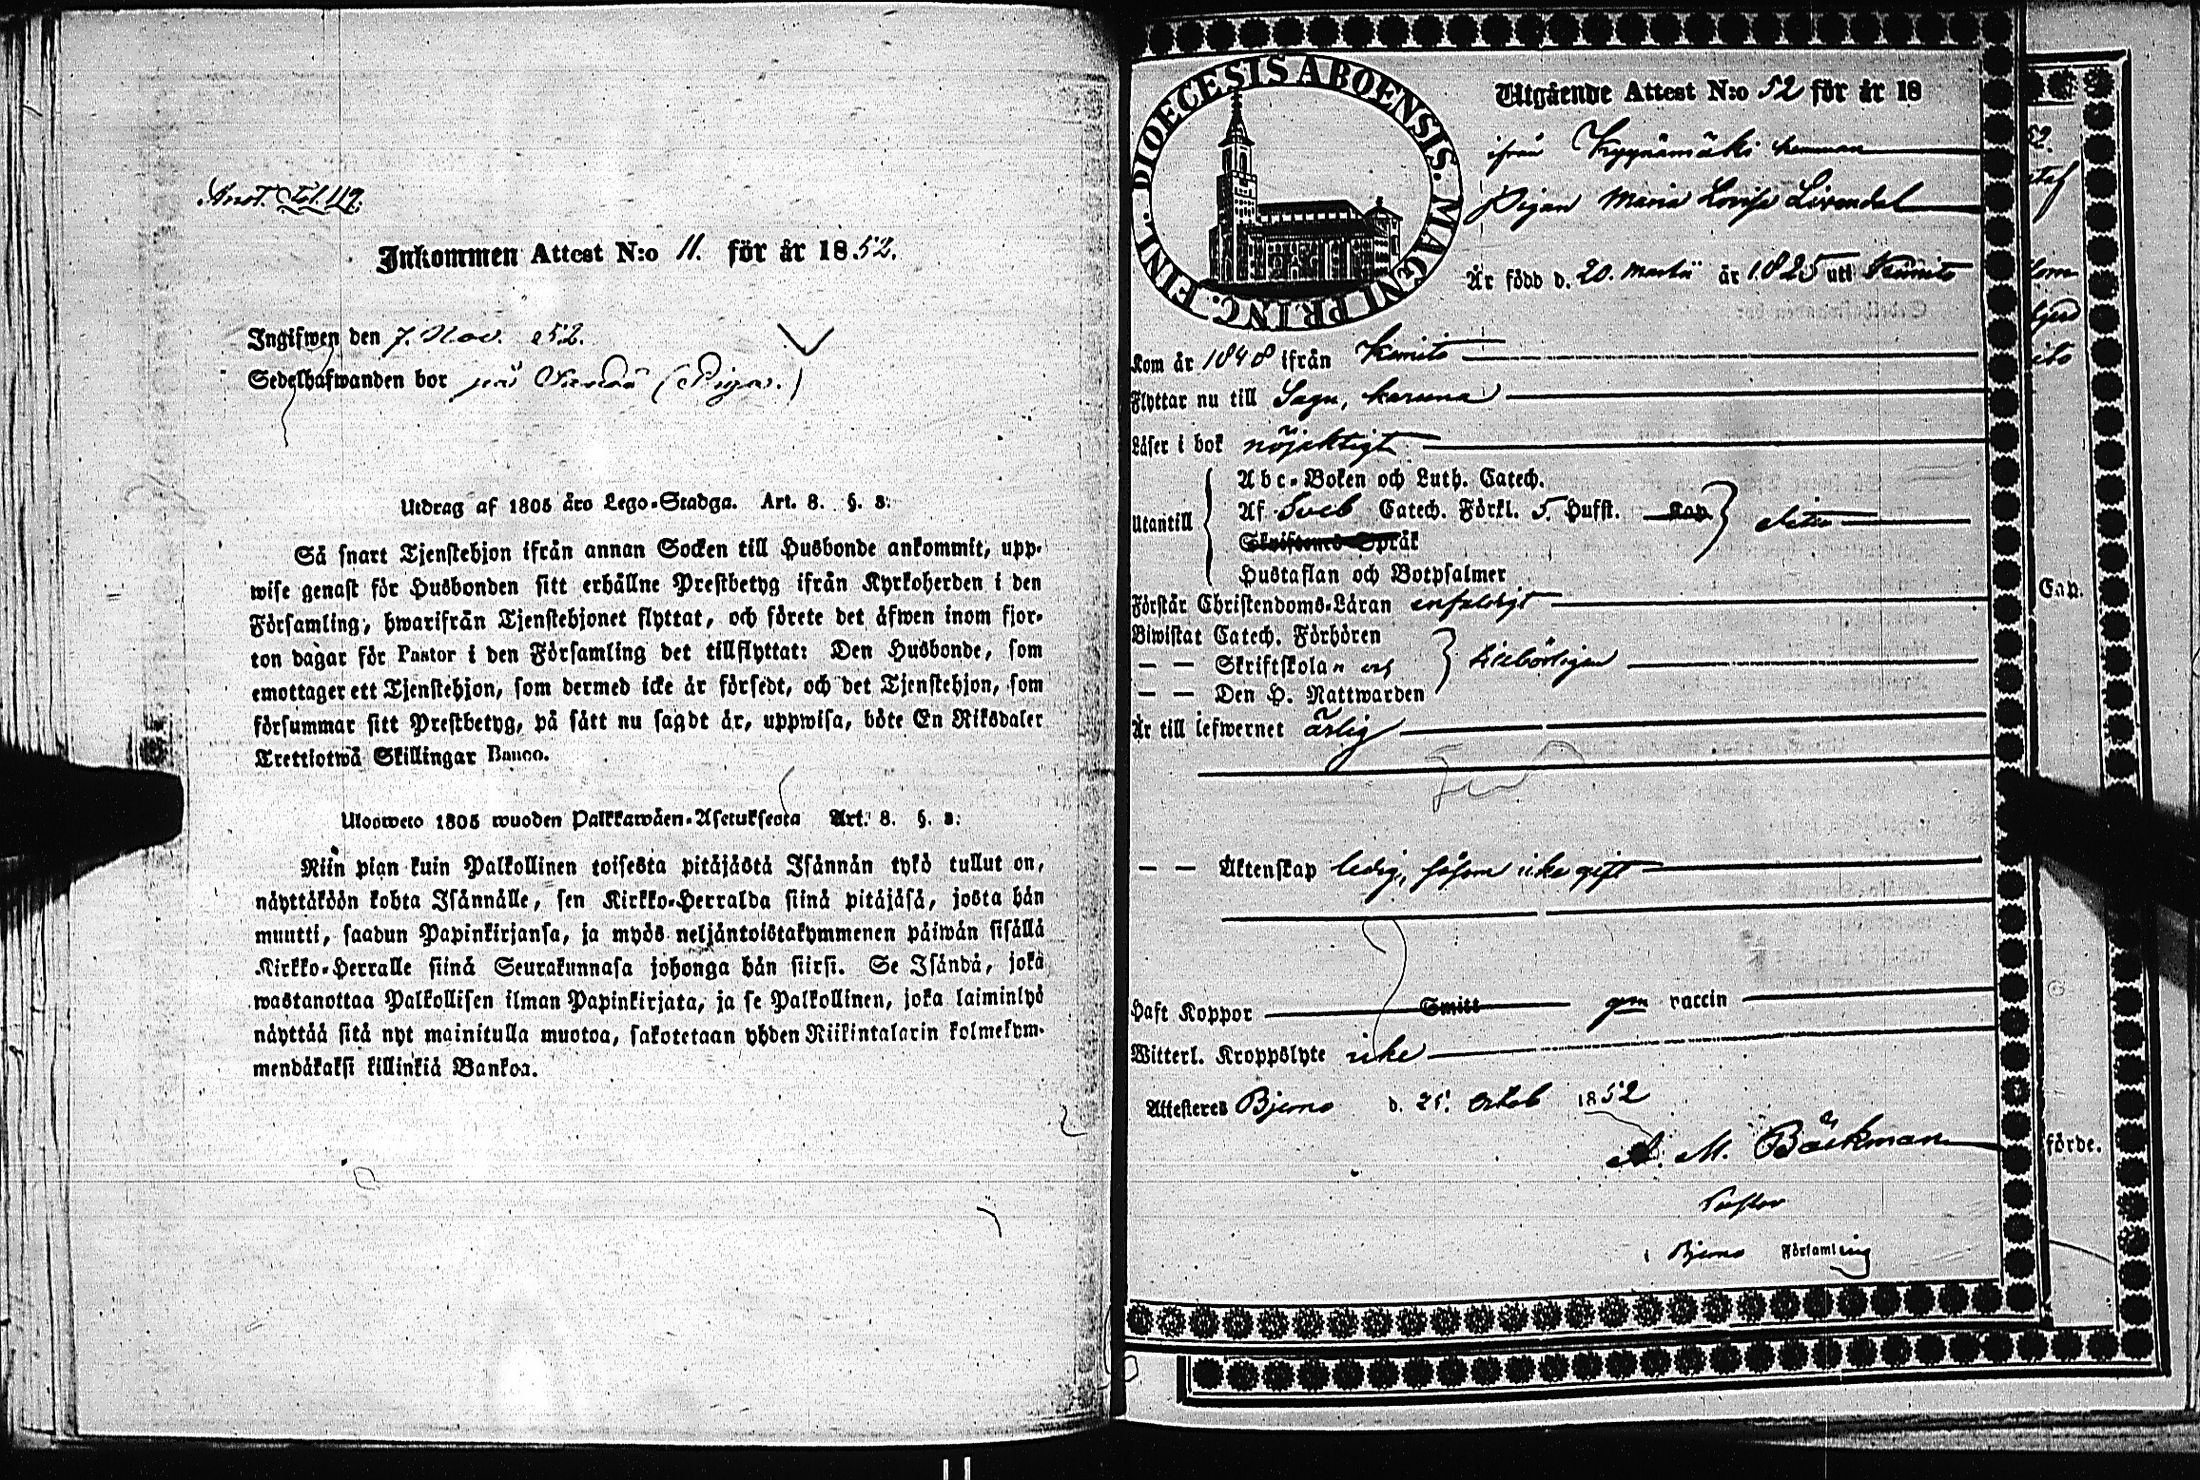 Anot. Fol. 119.
Inkommen Attest N:o 11. för år 1852.
Ingifwen den 7. Nov. 52.
Sedelhafwanden bor på (Pigan.)
Utdrag af 1805 års Lego-Stadga. Art. 8. §. 3:
Så snart Tjenstehjon ifrån annan Socken till Husbonde ankommit, upp-
wise genast för Husbonden sitt erhållne Prestbetyg ifrån Kyrkoherden i den
Församling, hwarifrån Tjenstehjonet flyttat, och förete det äfwen inom fjor-
ton dagar för Pastor i den Församling det tillflyttat: Den Husbonde, som
emottager ett Tjenstehjon, som dermed icke är försedt, och det Tjenstehjon, som
försummar sitt Prestbetyg, på sätt nu sagdt är, uppwisa, böte En Riksdaler
Trettiotwå Skillingar Banco.
Ulosweto 1805 wuoden Palkkawäen-Asetuksesta Art. 8. §. 3:
Niin pian kuin Palkollinen toisesta pitäjästä Isännän tykö tullut on,
näyttäköön kohta Isännälle, sen Kirkko-Herralda siinä pitäjäsä, josta hän
muutti, saadun Papinkirjansa, ja myös neljäntoistakymmenen päiwän sisällä
Kirkko-Herralle siinä Seurakunnasa johonga hän siirsi. Se Isändä, joka
wastanottaa Palkollisen ilman Papinkirjata, ja se Palkollinen, joka laiminlyö
näyttää sitä nyt mainitulla muotoa, sakotetaan yhden Riikintalarin kolmekym-
mendäkaksi killinkiä Bankoa.
DIOECESIS ABOENSIS. MAGNI PRINC. FINL.
Utgående Attest N:o 52 för år 18
ifrån Kyynämäki hemman
Pigan Maria Lovisa Lövendal
Är född d. 20. Martii år 1825 uti Kimito
Kom år 1848 ifrån Kimito
Flyttar nu till Sagu, Karuna
Läser i bok nöjaktigt
Utantill
Abc-Boken och Luth. Catech.
Af Sveb Catech. Förkl. 5. Hufst. Kap
Skriftenes Språk
Hustaflan och Botpsalmer
Förstår Christendoms-Läran enfaldigt
Biwistat Catech. Förhören
— — Skriftskolan och
— — Den H. Nattwarden
tillbörligen
Är till lefwernet ärlig
— — Äktenskap ledig, såsom icke gift
Haft Koppor Smitt gm vaccin
Witterl. Kroppslyte icke
Attesteres Bjerno d. 25. Octob 1852
A. M. Bäckman
Pastor
i Bjerno Församling
Cap.
förde.